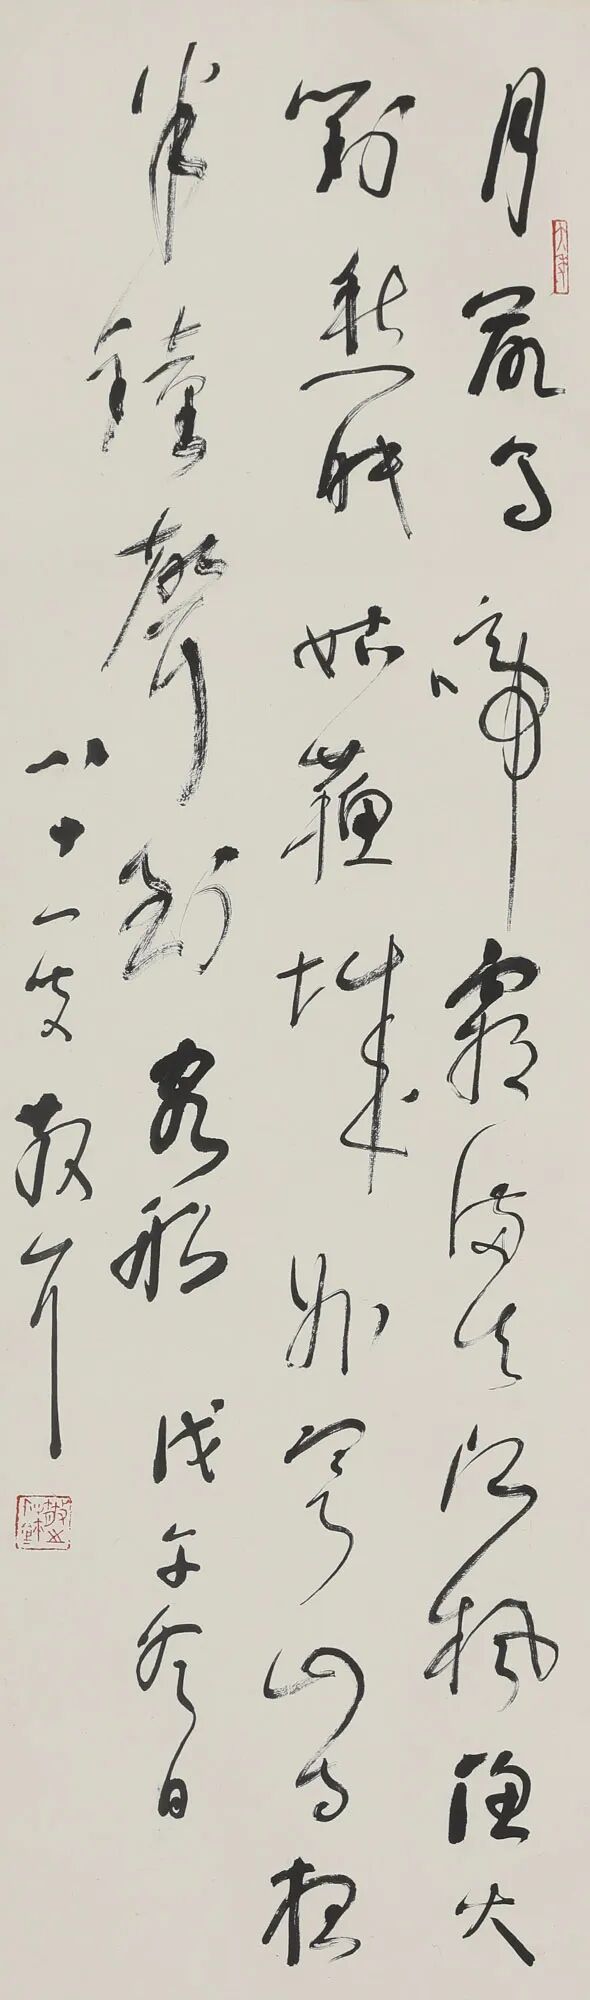 月落烏啼霜滿天江楓漁火
對愁眠姑蘇城外寒山寺夜
半鐘聲到客船 戊午冬日
八十一叟散耳
大年